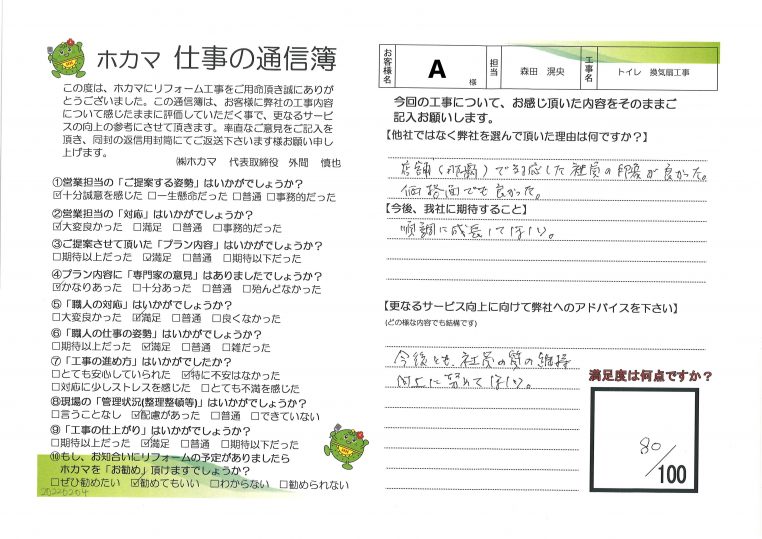 ホカマ 仕事の通信簿
この度は、ホカマにリフォーム工事をご用命頂き誠にありが
とうございました。この通信簿は、お客様に弊社の工事内容
について感じたままに評価していただく事で、更なるサービ
スの向上の参考にさせて頂きます。率直なご意見をご記入を
頂き、同封の返信用封筒にてご返送下さいます様お願い申し
上げます。
㈱ホカマ 代表取締役 外間 慎也
①営業担当の「ご提案する姿勢」はいかがでしょうか?
☑十分誠意を感じた □一生懸命だった □普通 □事務的だった
②営業担当の「対応」はいかがでしょうか?
☑大変良かった □満足 □普通 □事務的だった
③ご提案させて頂いた「プラン内容」はいかがでしょうか?
□期待以上だった ☑満足 □普通 □期待以下だった
④プラン内容に「専門家の意見」はありましたでしょうか?
☑かなりあった □十分あった □普通 □殆んどなかった
⑤「職人の対応」はいかがでしょうか?
□大変良かった ☑満足 □普通 □良くなかった
⑥「職人の仕事の姿勢」はいかがでしょうか?
□期待以上だった ☑満足 □普通 □雑だった
⑦「工事の進め方」はいかがでしたか?
□とても安心していられた ☑特に不安はなかった
□対応に少しストレスを感じた □とても不満を感じた
⑧現場の「管理状況(整理整頓等)」はいかがでしょうか?
□言うことなし ☑配慮があった □普通 □できていない
⑨「工事の仕上がり」はいかがでしょうか?
□期待以上だった ☑満足 □普通 □期待以下だった
⑩もし、お知合いにリフォームの予定がありましたら
ホカマを「お勧め」頂けますでしょうか?
□ぜひ勧めたい ☑勧めてもいい □わからない □勧められない
お客様名 A 様 担当 森田 滉央 工事名 トイレ 換気扇工事
今回の工事について、お感じ頂いた内容をそのままご
記入お願いします。
【他社ではなく弊社を選んで頂いた理由は何ですか?】
店舗(那覇)で対応した社員の印象が良かった。
価格面でも良かった。
【今後、我社に期待すること】
順調に成長してほしい。
【更なるサービス向上に向けて弊社へのアドバイスを下さい】
(どの様な内容でも結構です)
今後とも、社員の質の維持
向上に努めてほしい。
満足度は何点ですか?
80/100